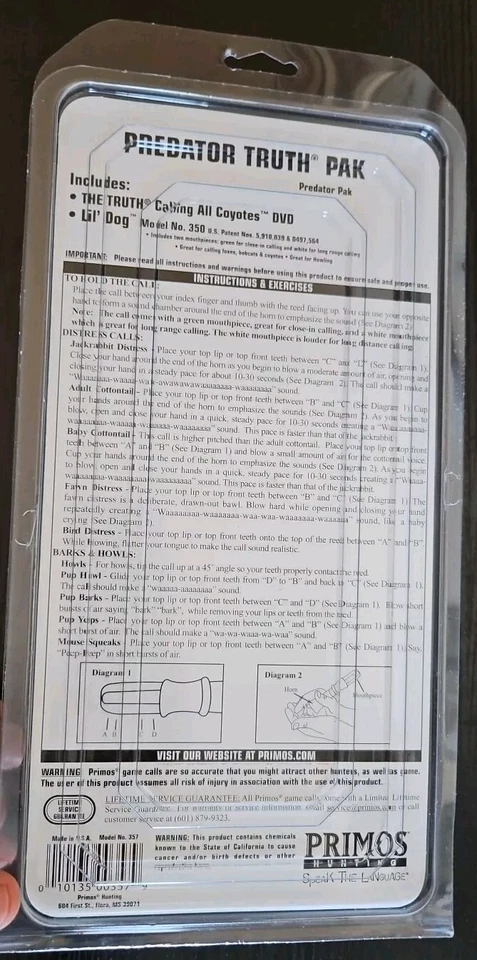 PREDATOR TRUTH® PAK
Predator Pak
Includes:
• THE TRUTH® Calling All Coyotes™ DVD
• Lil' Dog™ Model No. 350 U.S. Patent Nos. 5,910,039 & 6,497,564
• Includes two mouthpieces: green for close-in calling and white for long range calling
• Great for calling foxes, bobcats & coyotes • Great for Howling
IMPORTANT: Please read all instructions and warnings before using this product to ensure safe and proper use.
INSTRUCTIONS & EXERCISES
TO HOLD THE CALL:
Place the call between your index finger and thumb with the reed facing up. You can use your opposite
hand to form a sound chamber around the end of the horn to emphasize the sound (See Diagram 2)
Note: The call comes with a green mouthpiece, great for close-in calling, and a white mouthpiece
which is great for long range calling. The white mouthpiece is louder for long distance calling.
DISTRESS CALLS:
Jackrabbit Distress - Place your top lip or top front teeth between "C" and "D" (See Diagram 1).
Close your hand around the end of the horn as you begin to blow a moderate amount of air, opening and
closing your hand in a steady pace for about 10-30 seconds (See Diagram 2). The call should make a
sound.
Adult Cottontail - Place your top lip or top front teeth between "B" and "C" (See Diagram 1). Cup
your hands around the end of the horn to emphasize the sounds (See Diagram 2). As you begin to
blow, open and close your hand in a quick, steady pace for 10-30 seconds creating a
sound. This pace is faster than that of the jackrabbit.
Baby Cottontail - This call is higher pitched than the adult cottontail. Place your top lip or top front
teeth between "A" and "B" (See Diagram 1) and blow a small amount of air for the cottontail voice.
Cup your hands around the end of the horn to emphasize the sounds (See Diagram 2). As you begin
to blow, open and close your hands in a quick, steady pace for 10-30 seconds creating a
sound. This pace is faster than that of the jackrabbit.
Fawn Distress - Place your top lip or top front teeth between "B" and "C" (See Diagram 1). The
fawn distress is a deliberate, drawn-out bawl. Blow hard while opening and closing your hand
repeatedly creating sound, like a baby
crying (See Diagram 2).
Bird Distress - Place your top lip or top front teeth onto the top of the reed between "A" and "B".
While blowing, flutter your tongue to make the call sound realistic.
BARKS & HOWLS:
Howls - For howls, tip the call up at a 45° angle so your teeth properly contact the reed.
Pup Howl - Glide your top lip or top front teeth from "D" to "B" and back to "C" (See Diagram 1).
The call should make a sound.
Pup Barks - Place your top lip or top front teeth between "C" and "D" (See Diagram 1). Blow short
bursts of air saying "bark" "bark", while removing your lips or teeth from the reed.
Pup Yeps - Place your top lip or top front teeth between "A" and "B" (See Diagram 1) and blow a
short burst of air. The call should make a "wa-wa-waaa-wa-waa" sound.
Mouse Squeaks - Place your top lip or top front teeth between "A" and "B" (See Diagram 1). Say,
"Peep-Peep" in short bursts of air.
Diagram 1
A B C D
Diagram 2
Horn
Mouthpiece
VISIT OUR WEBSITE AT PRIMOS.COM
WARNING: Primos® game calls are so accurate that you might attract other hunters, as well as game.
The user of this product assumes all risk of injury in association with the use of this product.
LIFETIME
SERVICE
GUARANTEE
LIFETIME SERVICE GUARANTEE: All Primos® game calls come with a Limited Lifetime
Service Guarantee. For warranty or service information email service@primos.com or call
customer service at (601) 879-9323.
Made in U.S.A. Model No. 357
0 10135 00357 9
Primos® Hunting
604 First St., Flora, MS 39071
WARNING: This product contains chemicals
known to the State of California to cause
cancer and/or birth defects or other
reproductive harm.
PRIMOS®
HUNTING
SPEAK THE LANGUAGE®